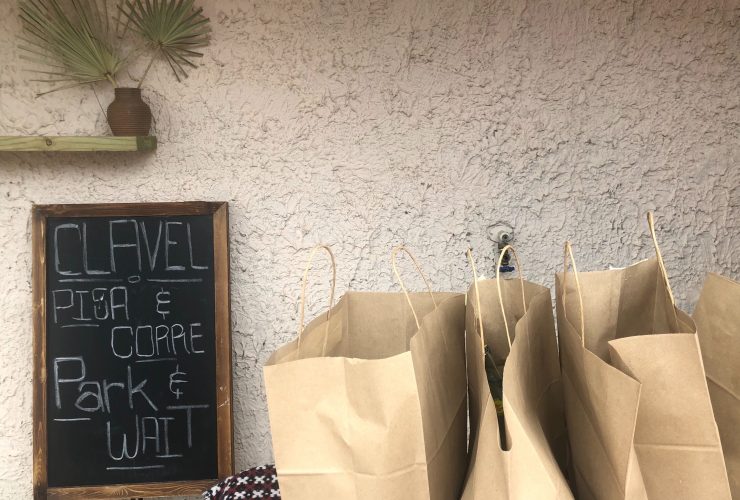 CLAVEL
PISA &
CORRE
Park &
WAIT